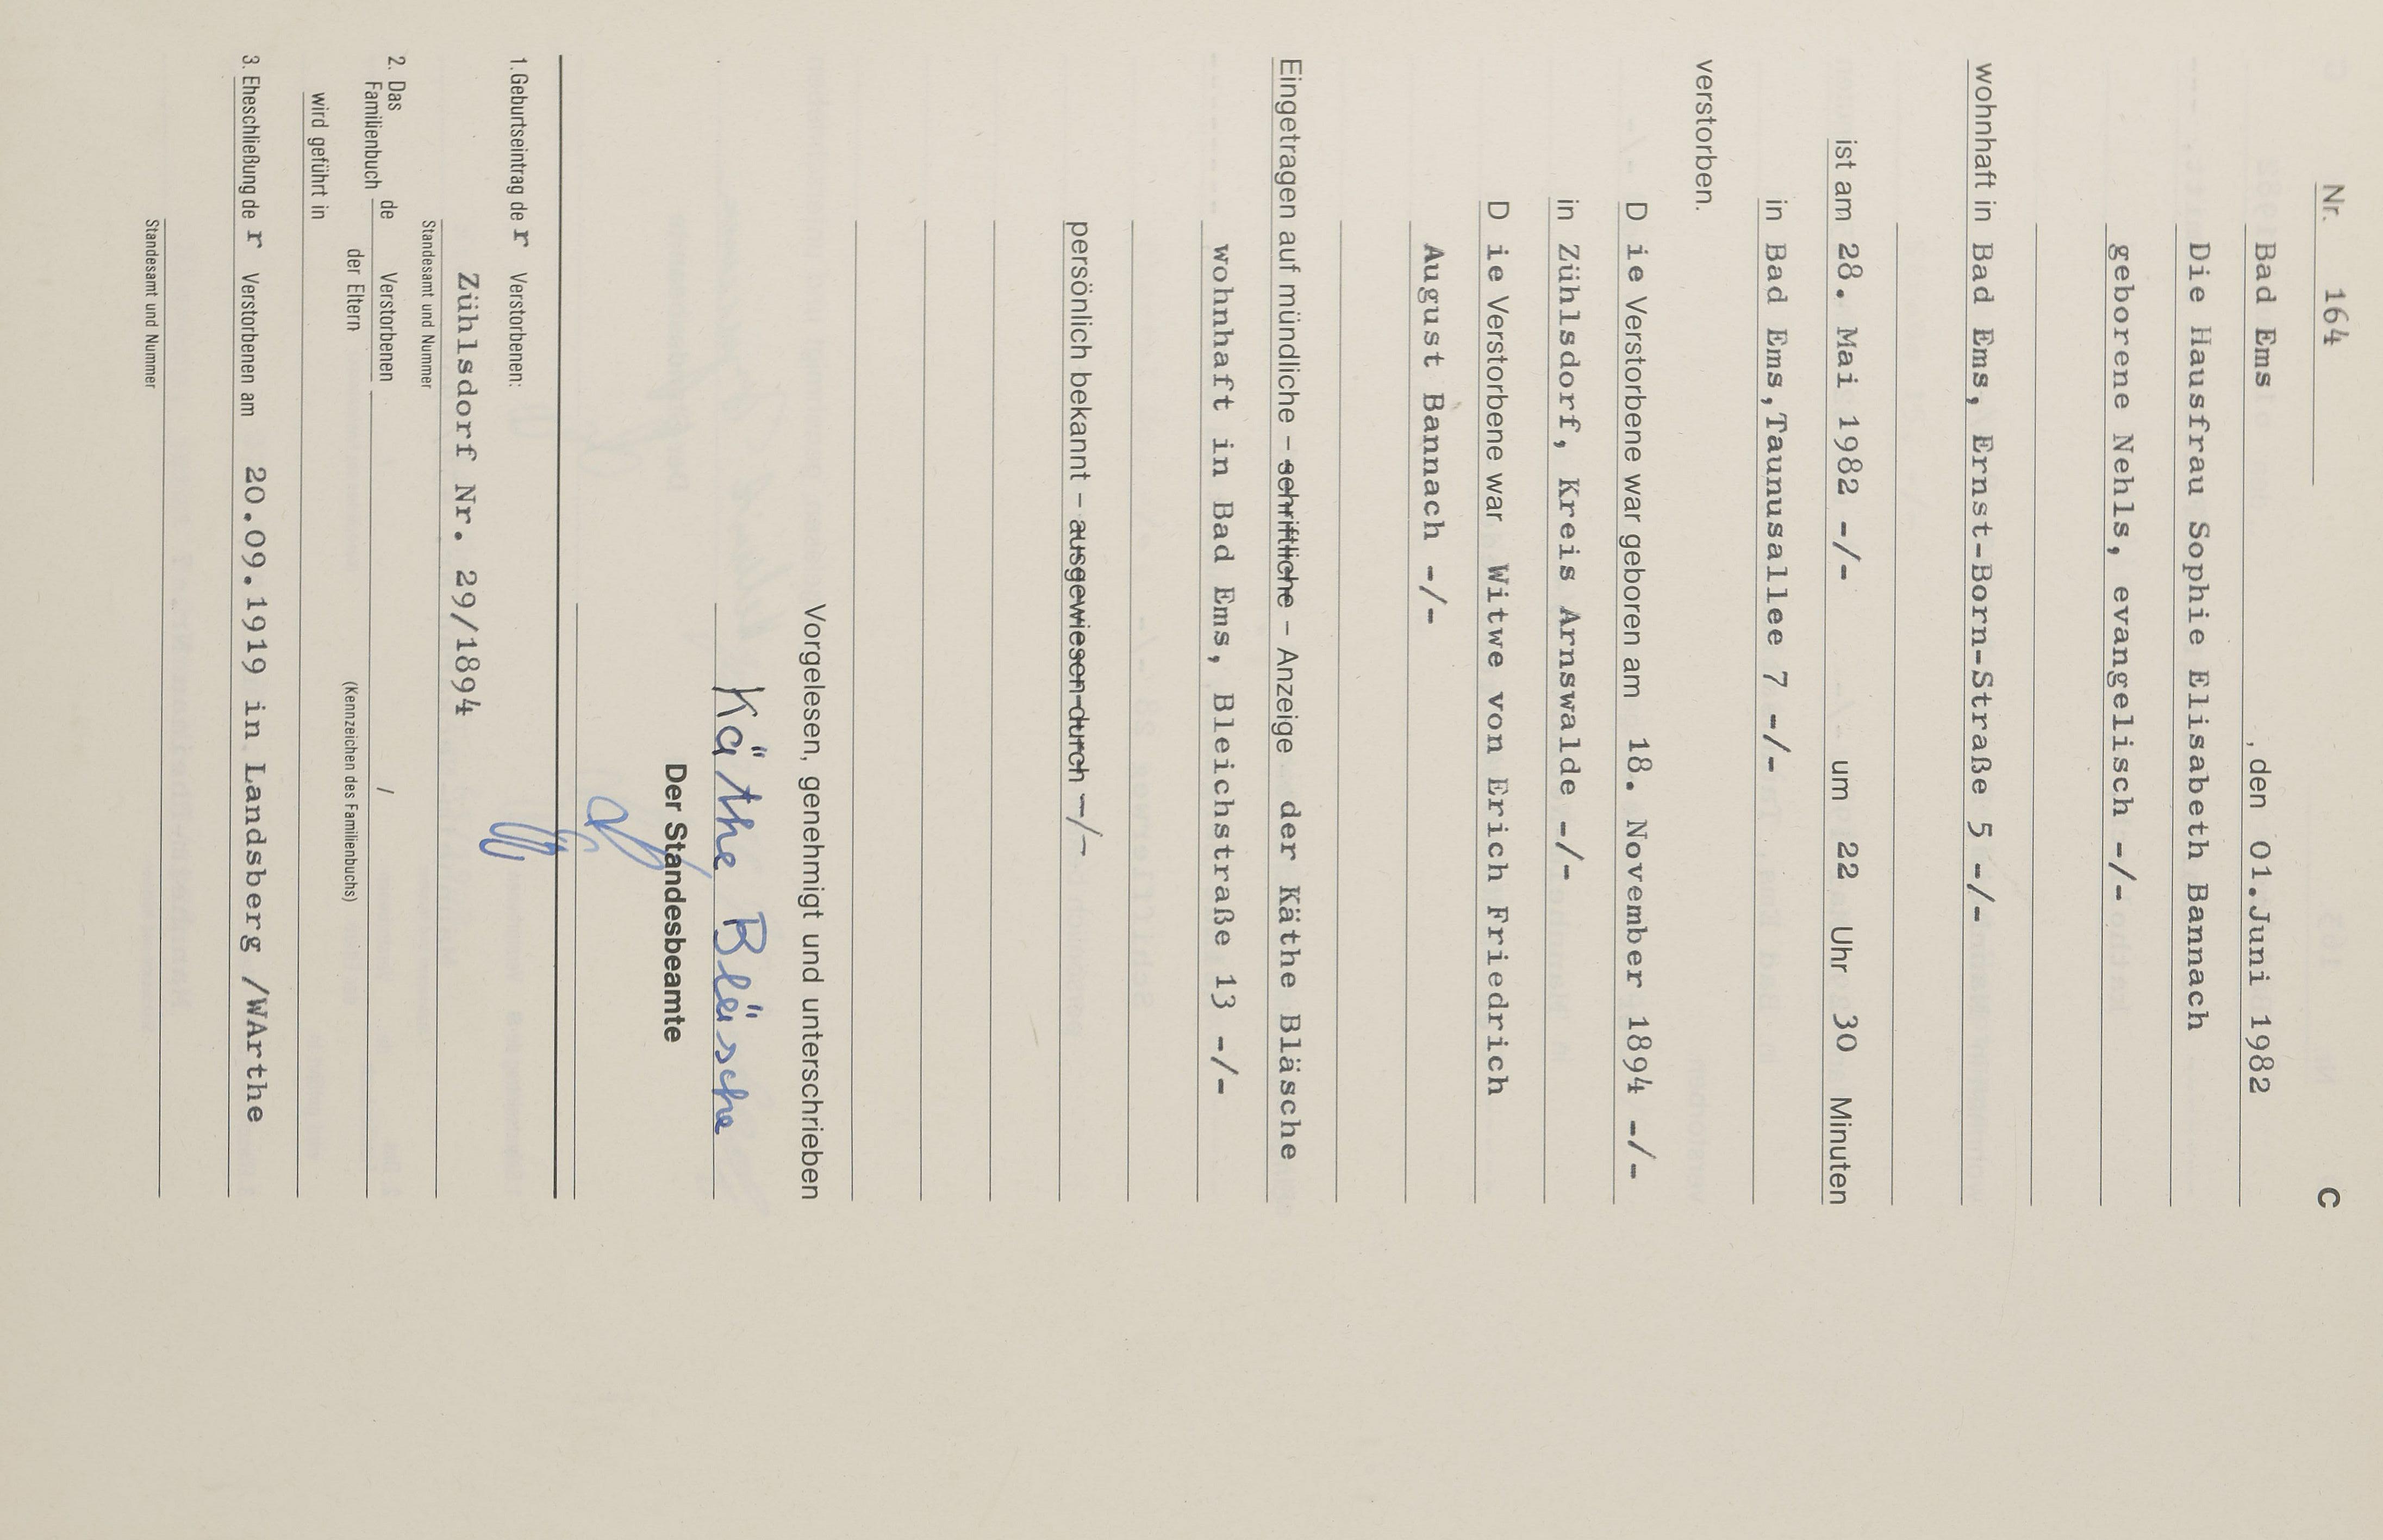 Nr. 164 C
Bad Ems, den 01.Juni 1982
Die Hausfrau Sophie Elisabeth Bannach
geborene Nehls, evangelisch -/-
wohnhaft in Bad Ems, Ernst-Born-Straße 5 -/-
ist am 28. Mai 1982 -/- um 22 Uhr 30 Minuten
in Bad Ems,Taunusallee 7 -/-
verstorben.
D ie Verstorbene war geboren am 18. November 1894 -/-
in Zühlsdorf, Kreis Arnswalde -/-
D ie Verstorbene war Witwe von Erich Friedrich
August Bannach -/-
Eingetragen auf mündliche – schriftliche – Anzeige der Käthe Bläsche
wohnhaft in Bad Ems, Bleichstraße 13 -/-
persönlich bekannt – ausgewiesen durch -/-
Vorgelesen, genehmigt und unterschrieben
Käthe Bläsche
Der Standesbeamte
1. Geburtseintrag de r Verstorbenen:
Zühlsdorf Nr. 29/1894
Standesamt und Nummer
2. Das Familienbuch de Verstorbenen /
der Eltern (Kennzeichen des Familienbuchs)
wird geführt in
3. Eheschließung de r Verstorbenen am 20.09.1919 in Landsberg /WArthe
Standesamt und Nummer